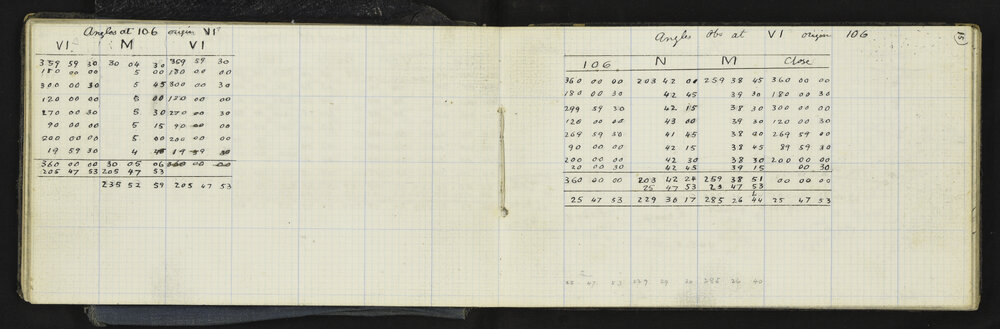 Angles at 106 origin VI
VI M VI
359 59 30 30 04 30 359 59 30
180 00 00 5 00 180 00 00
300 00 30 5 45 300 00 30
120 00 00 5 00 120 00 00
270 00 30 5 30 270 00 30
90 00 00 5 15 90 00 00
200 00 00 5 00 200 00 00
19 59 30 4 45 19 59 30
360 00 00 30 05 06 360 00 00
205 47 53 205 47 53
235 52 59 205 47 53
15
Angles Obs at VI origin 106
106 N M Close
360 00 00 203 42 00 259 38 45 360 00 00
180 00 30 42 45 39 30 180 00 30
299 59 30 42 15 38 30 300 00 00
120 00 00 43 00 39 30 120 00 30
269 59 30 41 45 38 00 269 59 00
90 00 00 42 15 38 45 89 59 30
200 00 00 42 30 38 30 200 00 00
20 00 30 42 45 39 15 00 30
360 00 00 203 42 24 259 38 51 00 00 00
25 47 53 25 47 53
25 47 53 229 30 17 285 26 44 25 47 53
25 47 53 229 29 285 26 40